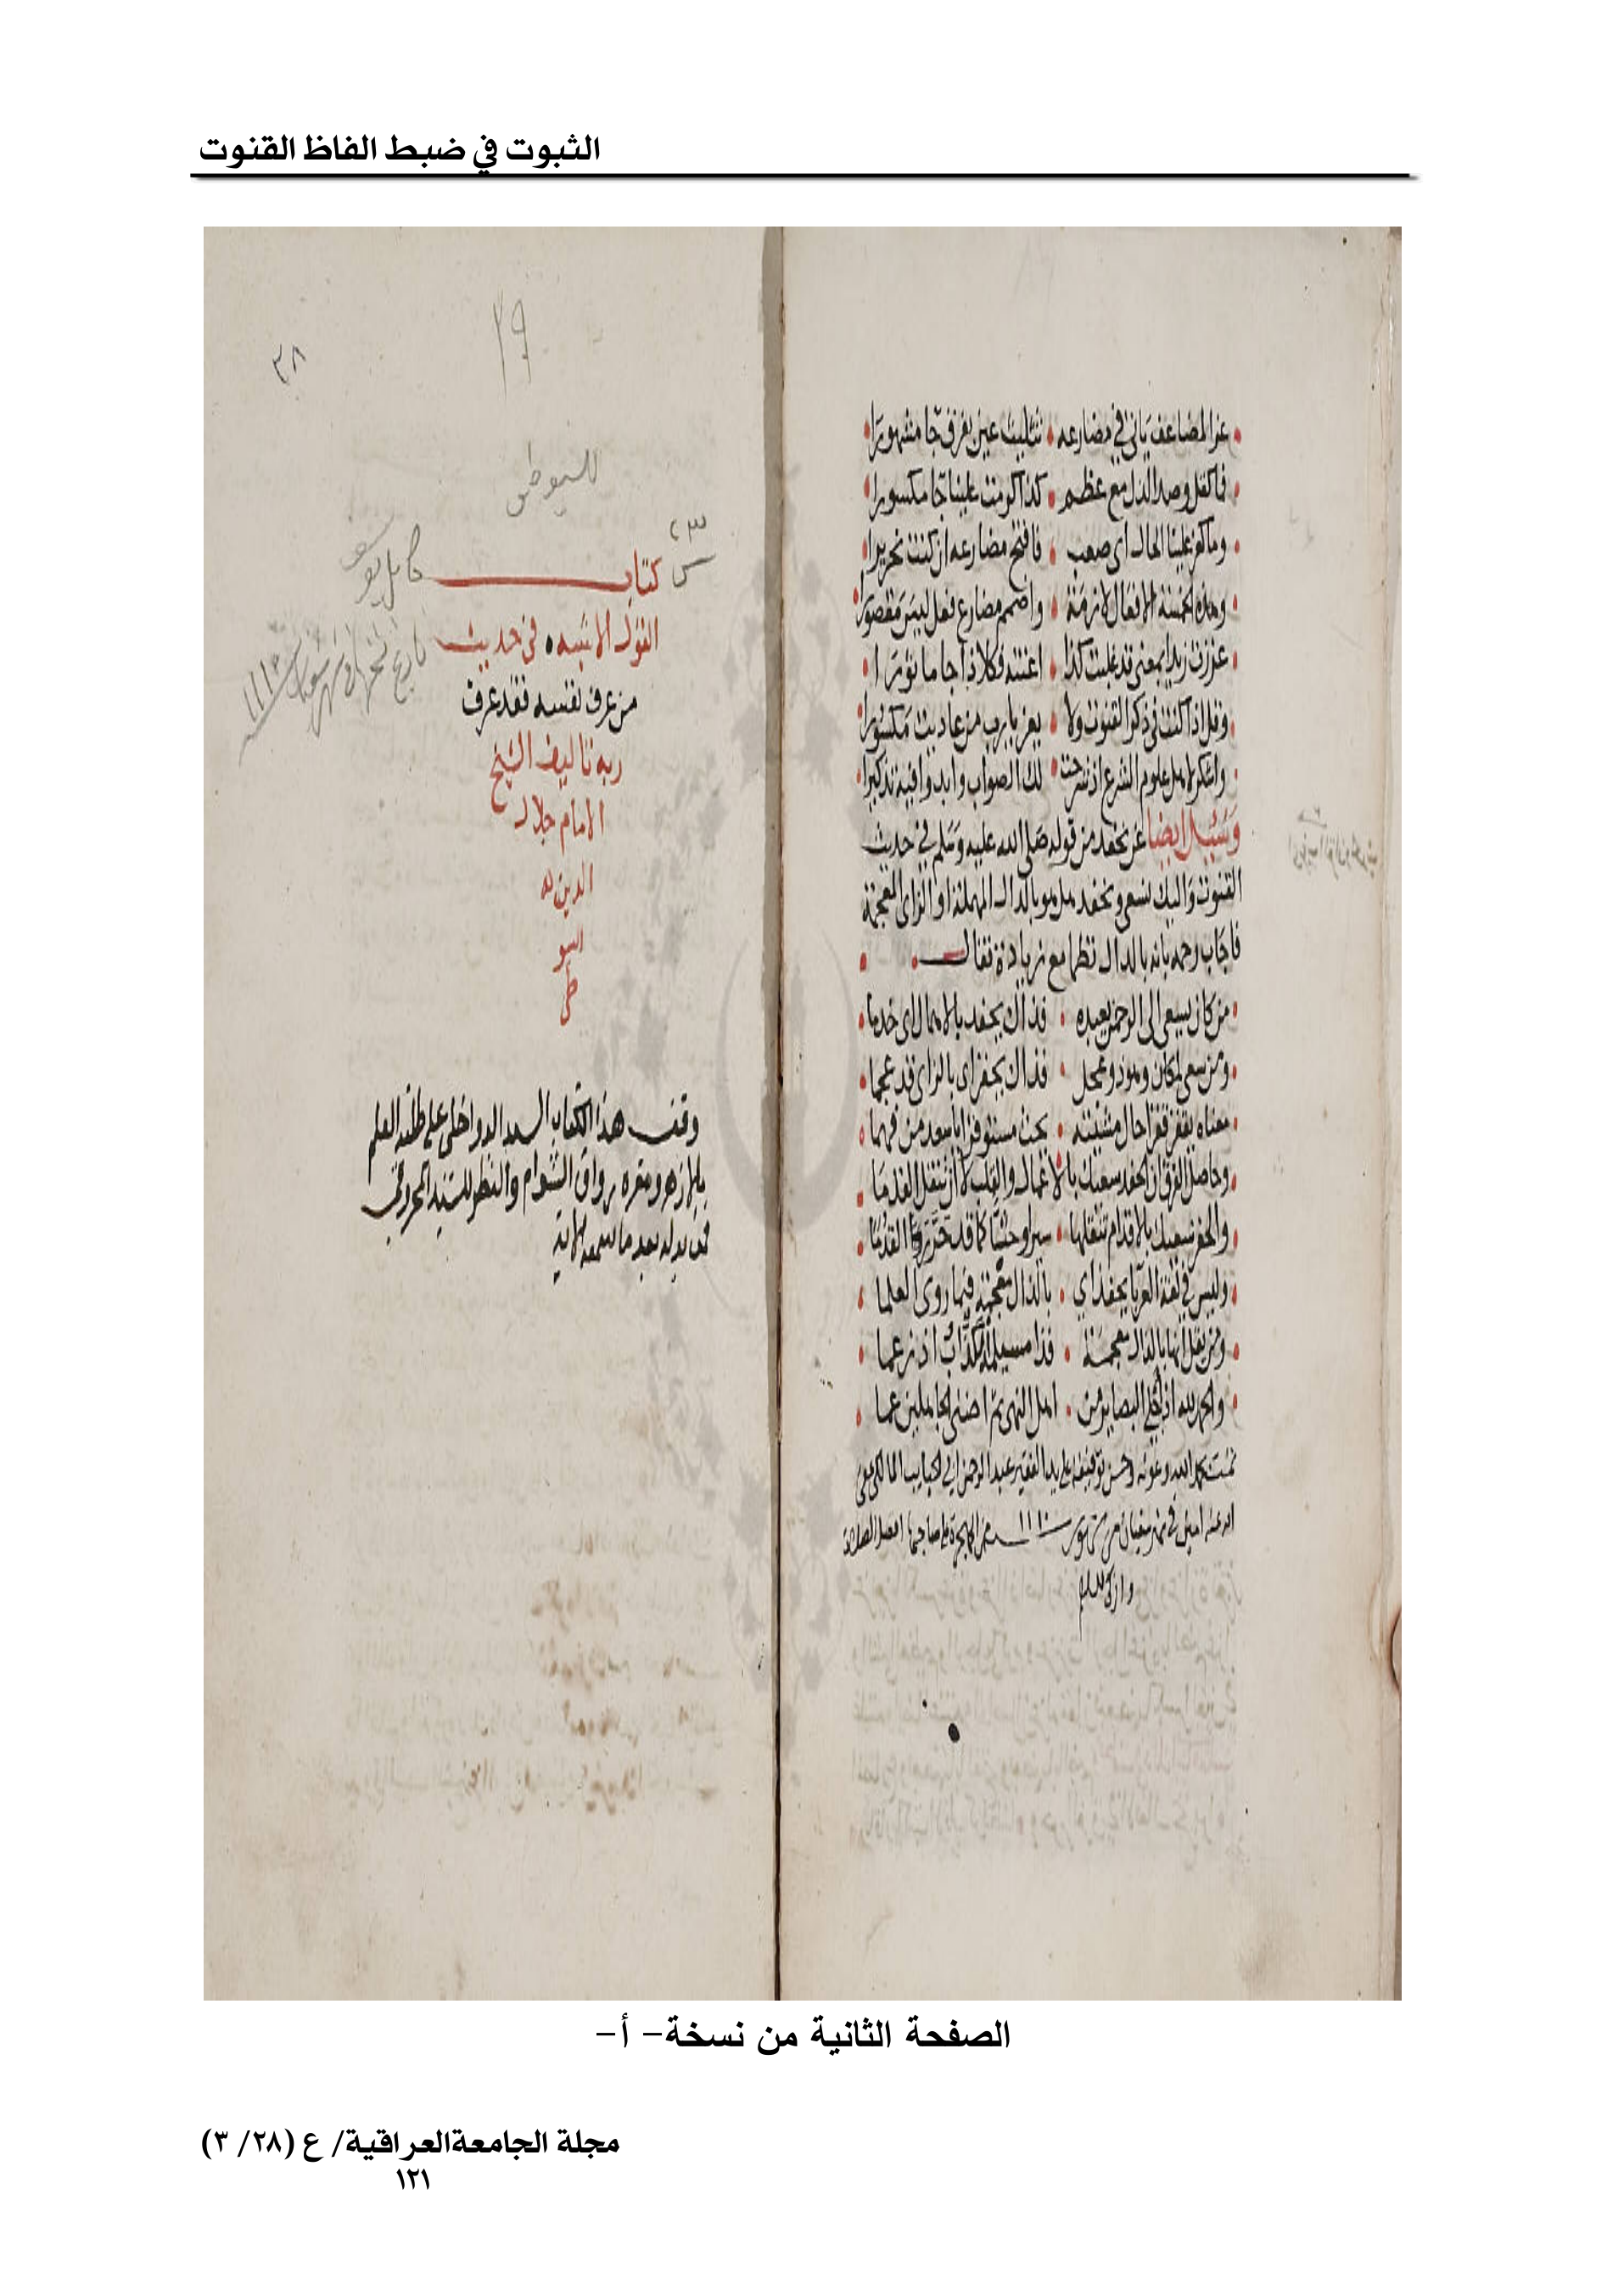 الثبوت في ضبط الفاظ القنوت
عز المضاعف يأتي في مضارعه تثليث عين بفرق جا مشهورا
فما كقل وضد الذل مع عظم كذا كرمت علينا جا مكسورا
وما كعز علينا الحال اي صعبت فافتح مضارعه ان كنت نحريرا
وهذه الخمسة الافعال لازمة واضمم مضارع فعل ليس مقصورا
عززت زيدا بمعنى قد غلبت كذا اعنته فكلا ذا جا ماثورا
وقل اذا كنت في ذكر القنوت ولا يعز يا رب من عاديت مكسورا
واشكر لاهل علوم الشرع اذ شرحت لك الصواب وابدوا فيه تذكيرا
وسئل ايضا عن نحفد من قوله صلى الله عليه وسلم في حديث
القنوت واليك نسعى ونحفد هل هو بالدال المهملة او الزاي المعجمة
فاجاب رحمه بانه بالدال نظما مع زيادة فقال
من كان يسعى الى الرحمن يعبده فذاك يحفد بالاهمال اي خدما
ومن سعى لمكان وهو ذو عجل فذاك يحفز اي بالزاي قد عجما
معناه يقفز قفزا حال مشيته بحث مستوفزا يا سعد من فهما
وحاصل الفرق ان الحفد سعيك بالاعمال والقلب لا ان تنقل القدما
والحفز سعيك بالاقدام تنقلها سيرا وحثا كما قد حرر القدما
وليس في لغة العربا يحفذ اي بالذال معجمة فيما روى العلما
ومن يقل انها بالذال معجمة فذا مسيلمة الكذاب اذ زعما
والحمد لله اذ جلى البصائر من اهل النهى ثم اضنى الجاهلين عما
تمت بحمد الله وعونه وحسن توفيقه على يد الفقير عبد الرحمن المالكي عفى
الله عنه امين في شهر شعبان من شهور ١١١٠ من الهجرة على صاحبها افضل الصلاة
وازكى السلام
٣٨
٢٩
للسيوطي
كتاب
القول الاشبه في حديث
من عرف نفسه فقد عرف
ربه تاليف الشيخ
الامام جلال
الدين
السيو
طي
وقف هذا الكتاب السيد الدواخلي على طلبة العلم
بالازهر ومقره رواق الشوام والنظر للسيد المحروقي
فمن بدله بعد ما سمعه الاية
الصفحة الثانية من نسخة- أ-
مجلة الجامعة العراقية/ ع (٢٨/ ٣)
١٢١